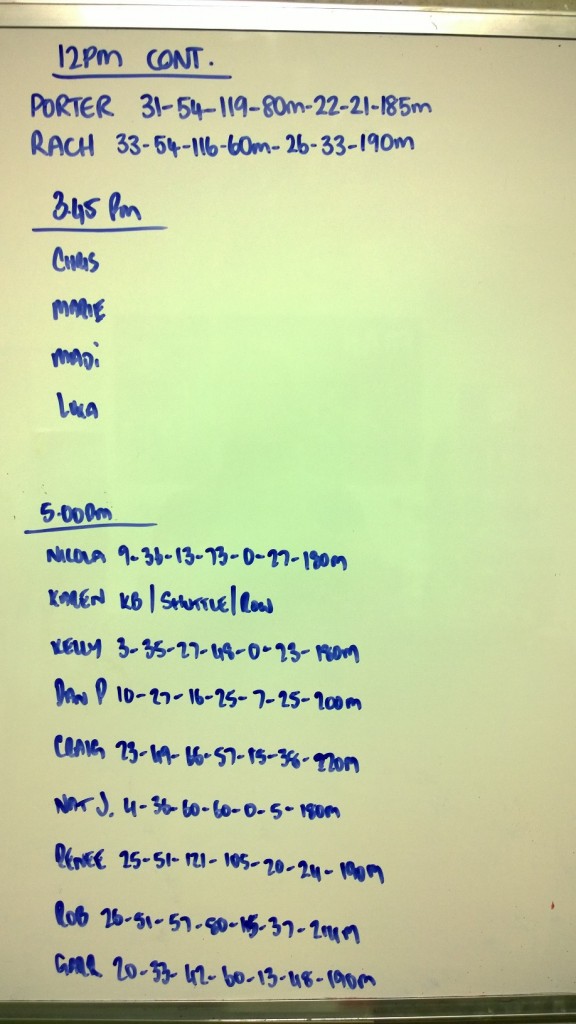 12PM CONT.
PORTER 31-54-119-80m-22-21-185m
RACH 33-54-116-60m-26-33-190m
3.45 Pm
CHRIS
MARIE
MADi
LUKA
5.00Pm
NICOLA 9-36-13-73-0-27-180m
KAREN KB | SHUTTLE | ROW
KELLY 3-35-27-48-0-23-180m
DAN P 10-27-16-25-7-25-200m
CRAIG 23-49-66-57-15-38-220m
NAT J. 4-36-60-60-0-5-180m
RENEE 25-51-121-105-20-24-190m
ROB 26-51-57-80-15-37-214m
20-33-42-60-13-48-190m